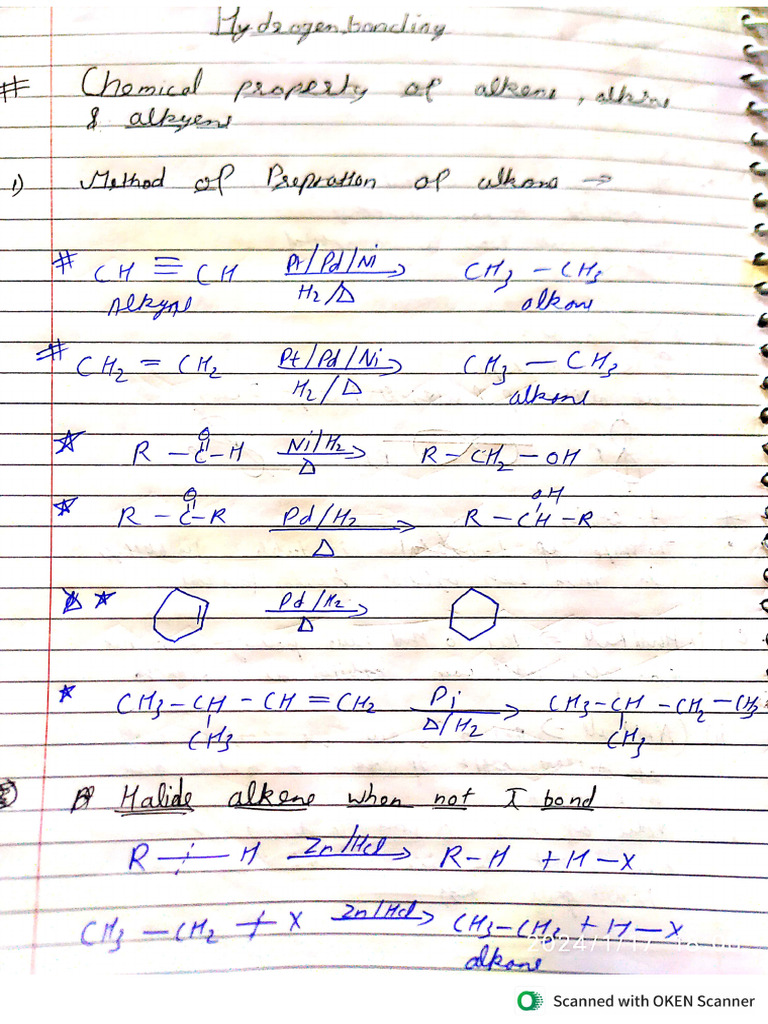 Hydrogen bonding
# Chemical property of alkene, alkine
& alkyene
1) Method of Prepration of alkane →
# CH ≡ CH Pt/Pd/Ni → CH3 – CH3
Alkyne H2/Δ alkane
# CH2 = CH2 Pt/Pd/Ni → CH3 — CH3
H2/Δ alkane
O
R – C – H Ni/H2 → R – CH2 – OH
Δ
O OH
R – C – R Pd/H2 → R – CH – R
Δ
Pd/H2 →
Δ
CH3 – CH – CH = CH2 → CH3 – CH – CH2 – CH3
CH3 Δ/H2 CH3
Halide alkene when not π bond
R — H Zn/Hcl → R – H + H – X
CH3 — CH2 + X Zn/Hcl → CH3 – CH2 + H – X
alkane
Scanned with OKEN Scanner